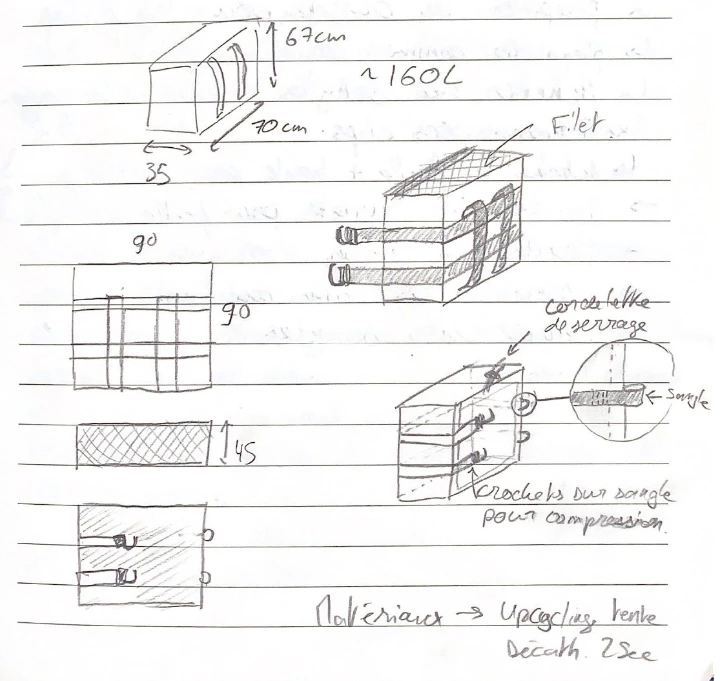 67cm
~160L
70cm
35
Filet
90
90
cordelette
de serrage
sangle
45
crochets sur sangle
pour compression.
Matériaux → Upcycling tente
Décath. 2Sec